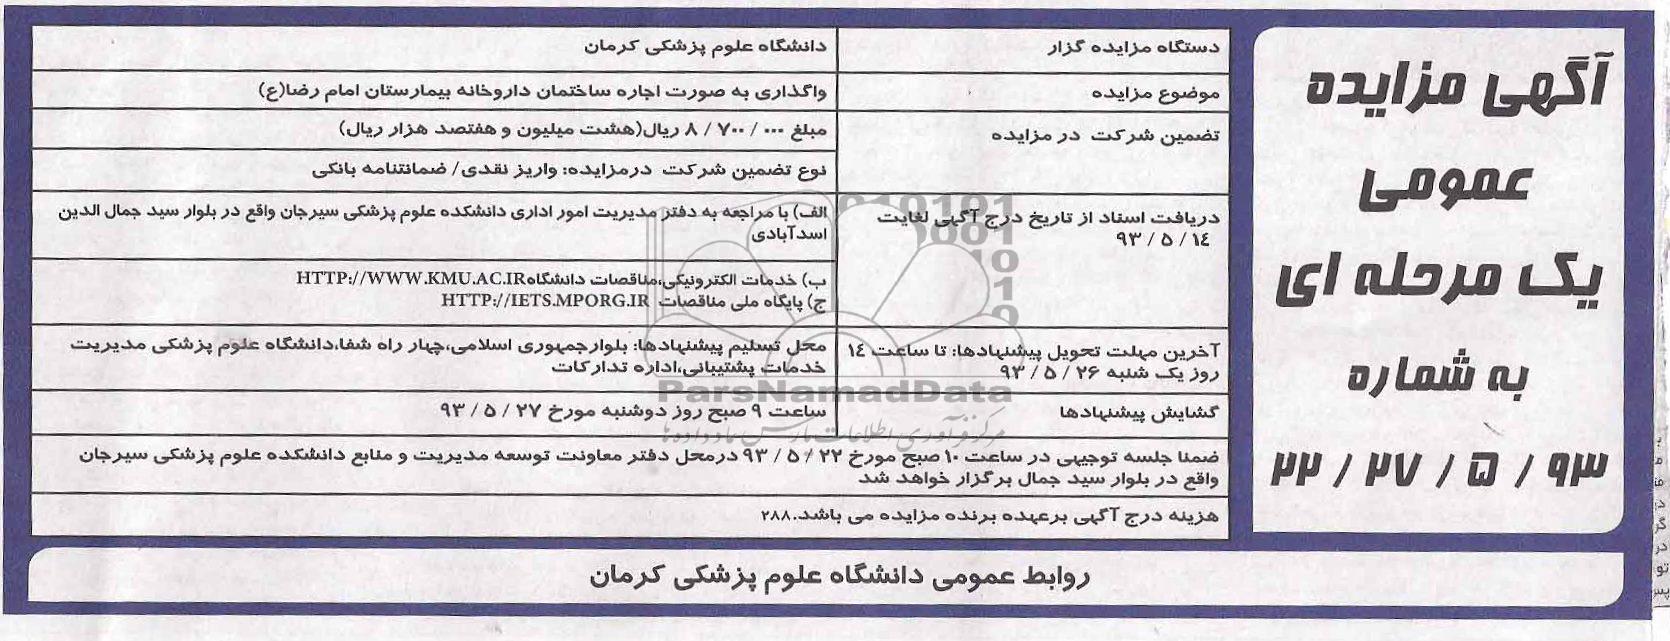 آگهی مزایده
عمومی
یک مرحله ای
به شماره
۲۲ / ۲۷ / ۵ / ۹۳
دستگاه مزایده گزار
دانشگاه علوم پزشکی کرمان
موضوع مزایده
واگذاری به صورت اجاره ساختمان داروخانه بیمارستان امام رضا(ع)
تضمین شرکت در مزایده
مبلغ ۰۰۰ / ۷۰۰ / ۸ ریال(هشت میلیون و هفتصد هزار ریال)
نوع تضمین شرکت درمزایده: واریز نقدی/ ضمانتنامه بانکی
دریافت اسناد از تاریخ درج آگهی لغایت
۱۴ / ۵ / ۹۳
الف) با مراجعه به دفتر مدیریت امور اداری دانشکده علوم پزشکی سیرجان واقع در بلوار سید جمال الدین
اسدآبادی
ب) خدمات الکترونیکی،مناقصات دانشگاهHTTP://WWW.KMU.AC.IR
ج) پایگاه ملی مناقصات HTTP://IETS.MPORG.IR
آخرین مهلت تحویل پیشنهادها: تا ساعت ۱۴
روز یک شنبه ۲۶ / ۵ / ۹۳
محل تسلیم پیشنهادها: بلوارجمهوری اسلامی،چهار راه شفا،دانشگاه علوم پزشکی مدیریت
خدمات پشتیبانی،اداره تدارکات
ParsNamadData
گشایش پیشنهادها
ساعت ۹ صبح روز دوشنبه مورخ ۲۷ / ۵ / ۹۳
مرکز فرآوری اطلاعات پارس نماد داده ها
ضمنا جلسه توجیهی در ساعت ۱۰ صبح مورخ ۲۲ / ۵ / ۹۳ درمحل دفتر معاونت توسعه مدیریت و منابع دانشکده علوم پزشکی سیرجان
واقع در بلوار سید جمال برگزار خواهد شد
هزینه درج آگهی برعهده برنده مزایده می باشد.۲۸۸
روابط عمومی دانشگاه علوم پزشکی کرمان